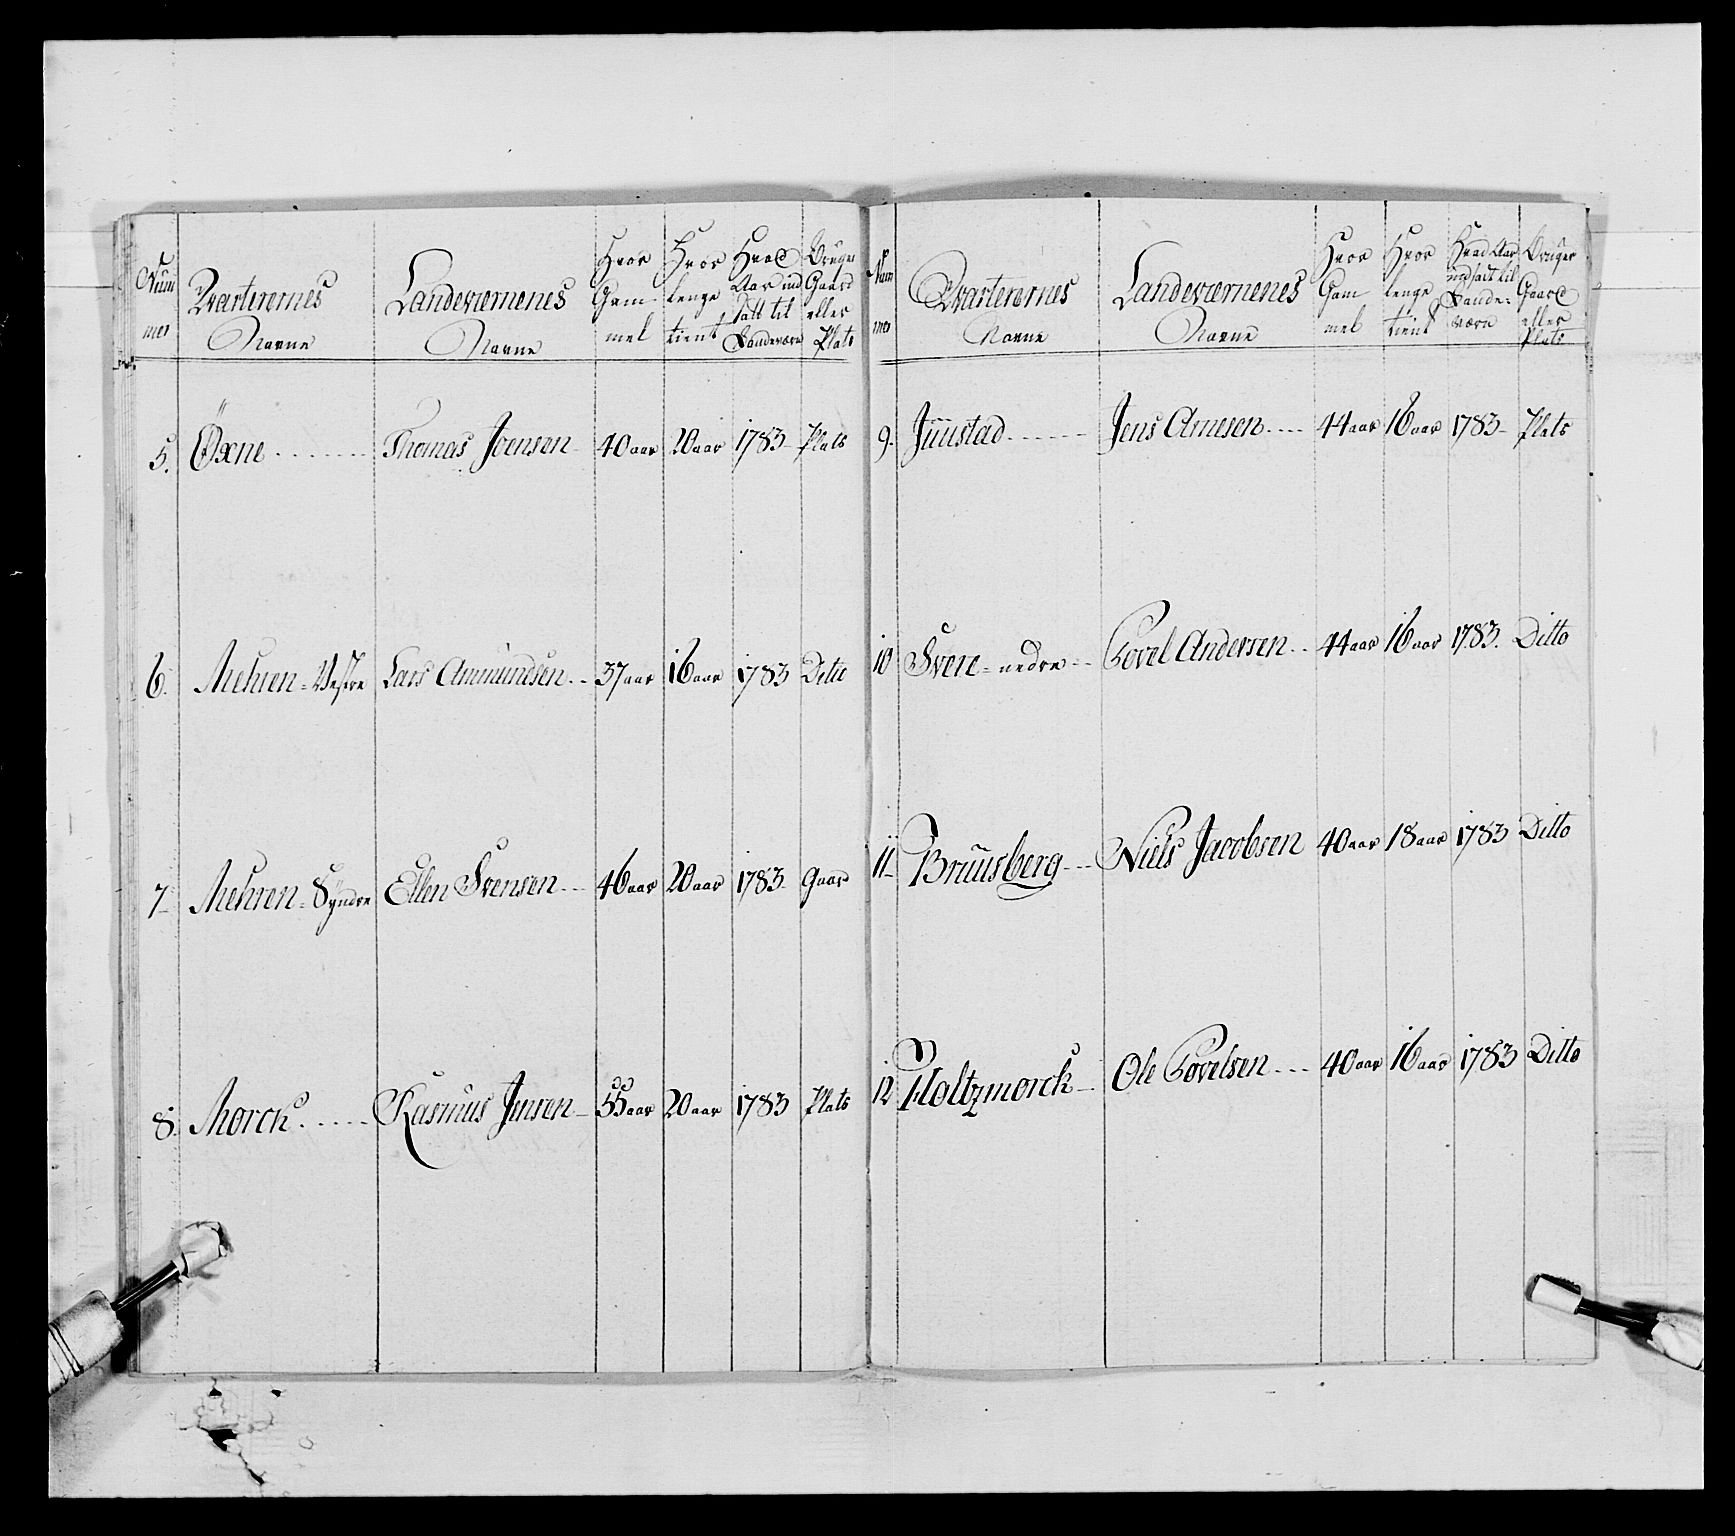 Num mer | Qvarterernes Navne | Landeværnenes Navne | Hvor Gam mel | Hvor lenge tient | Hvad Aar ind satt til Landeværn | Bruger Gaard eller Plats
5. Öxne | Thomas Joensen | 40 aar | 20 aar | 1783 | Plats
6. Mehren - Vestre | Lars Ammundsen | 37 aar | 16 aar | 1783 | Ditto
7 Mehren - Syndre | Ellen Svensen | 46 aar | 20 aar | 1783 | Gaar
8. Morck | Rasmus Jensen | 55 aar | 20 aar | 1783 | Plats
Num mer | Qvarterernes Navne | Landeværnenes Navne | Hvor Gam mel | Hvor lenge tient | Hvad Aar indsadt til Lande: værn | Bruger Gaard eller Plats
9. Juustad | Jens Arnesen | 44 aar | 16 aar | 1783 | Plats
10 Svere - nedre | Povel Andersen | 44 aar | 16 aar | 1783. | Ditto
11 Bruusberg | Niels Jacobsen | 40 aar | 18 aar | 1783 | Ditto
12 Holtzmorck | Ole Povelsen | 40 aar | 16 aar | 1783 | Ditto